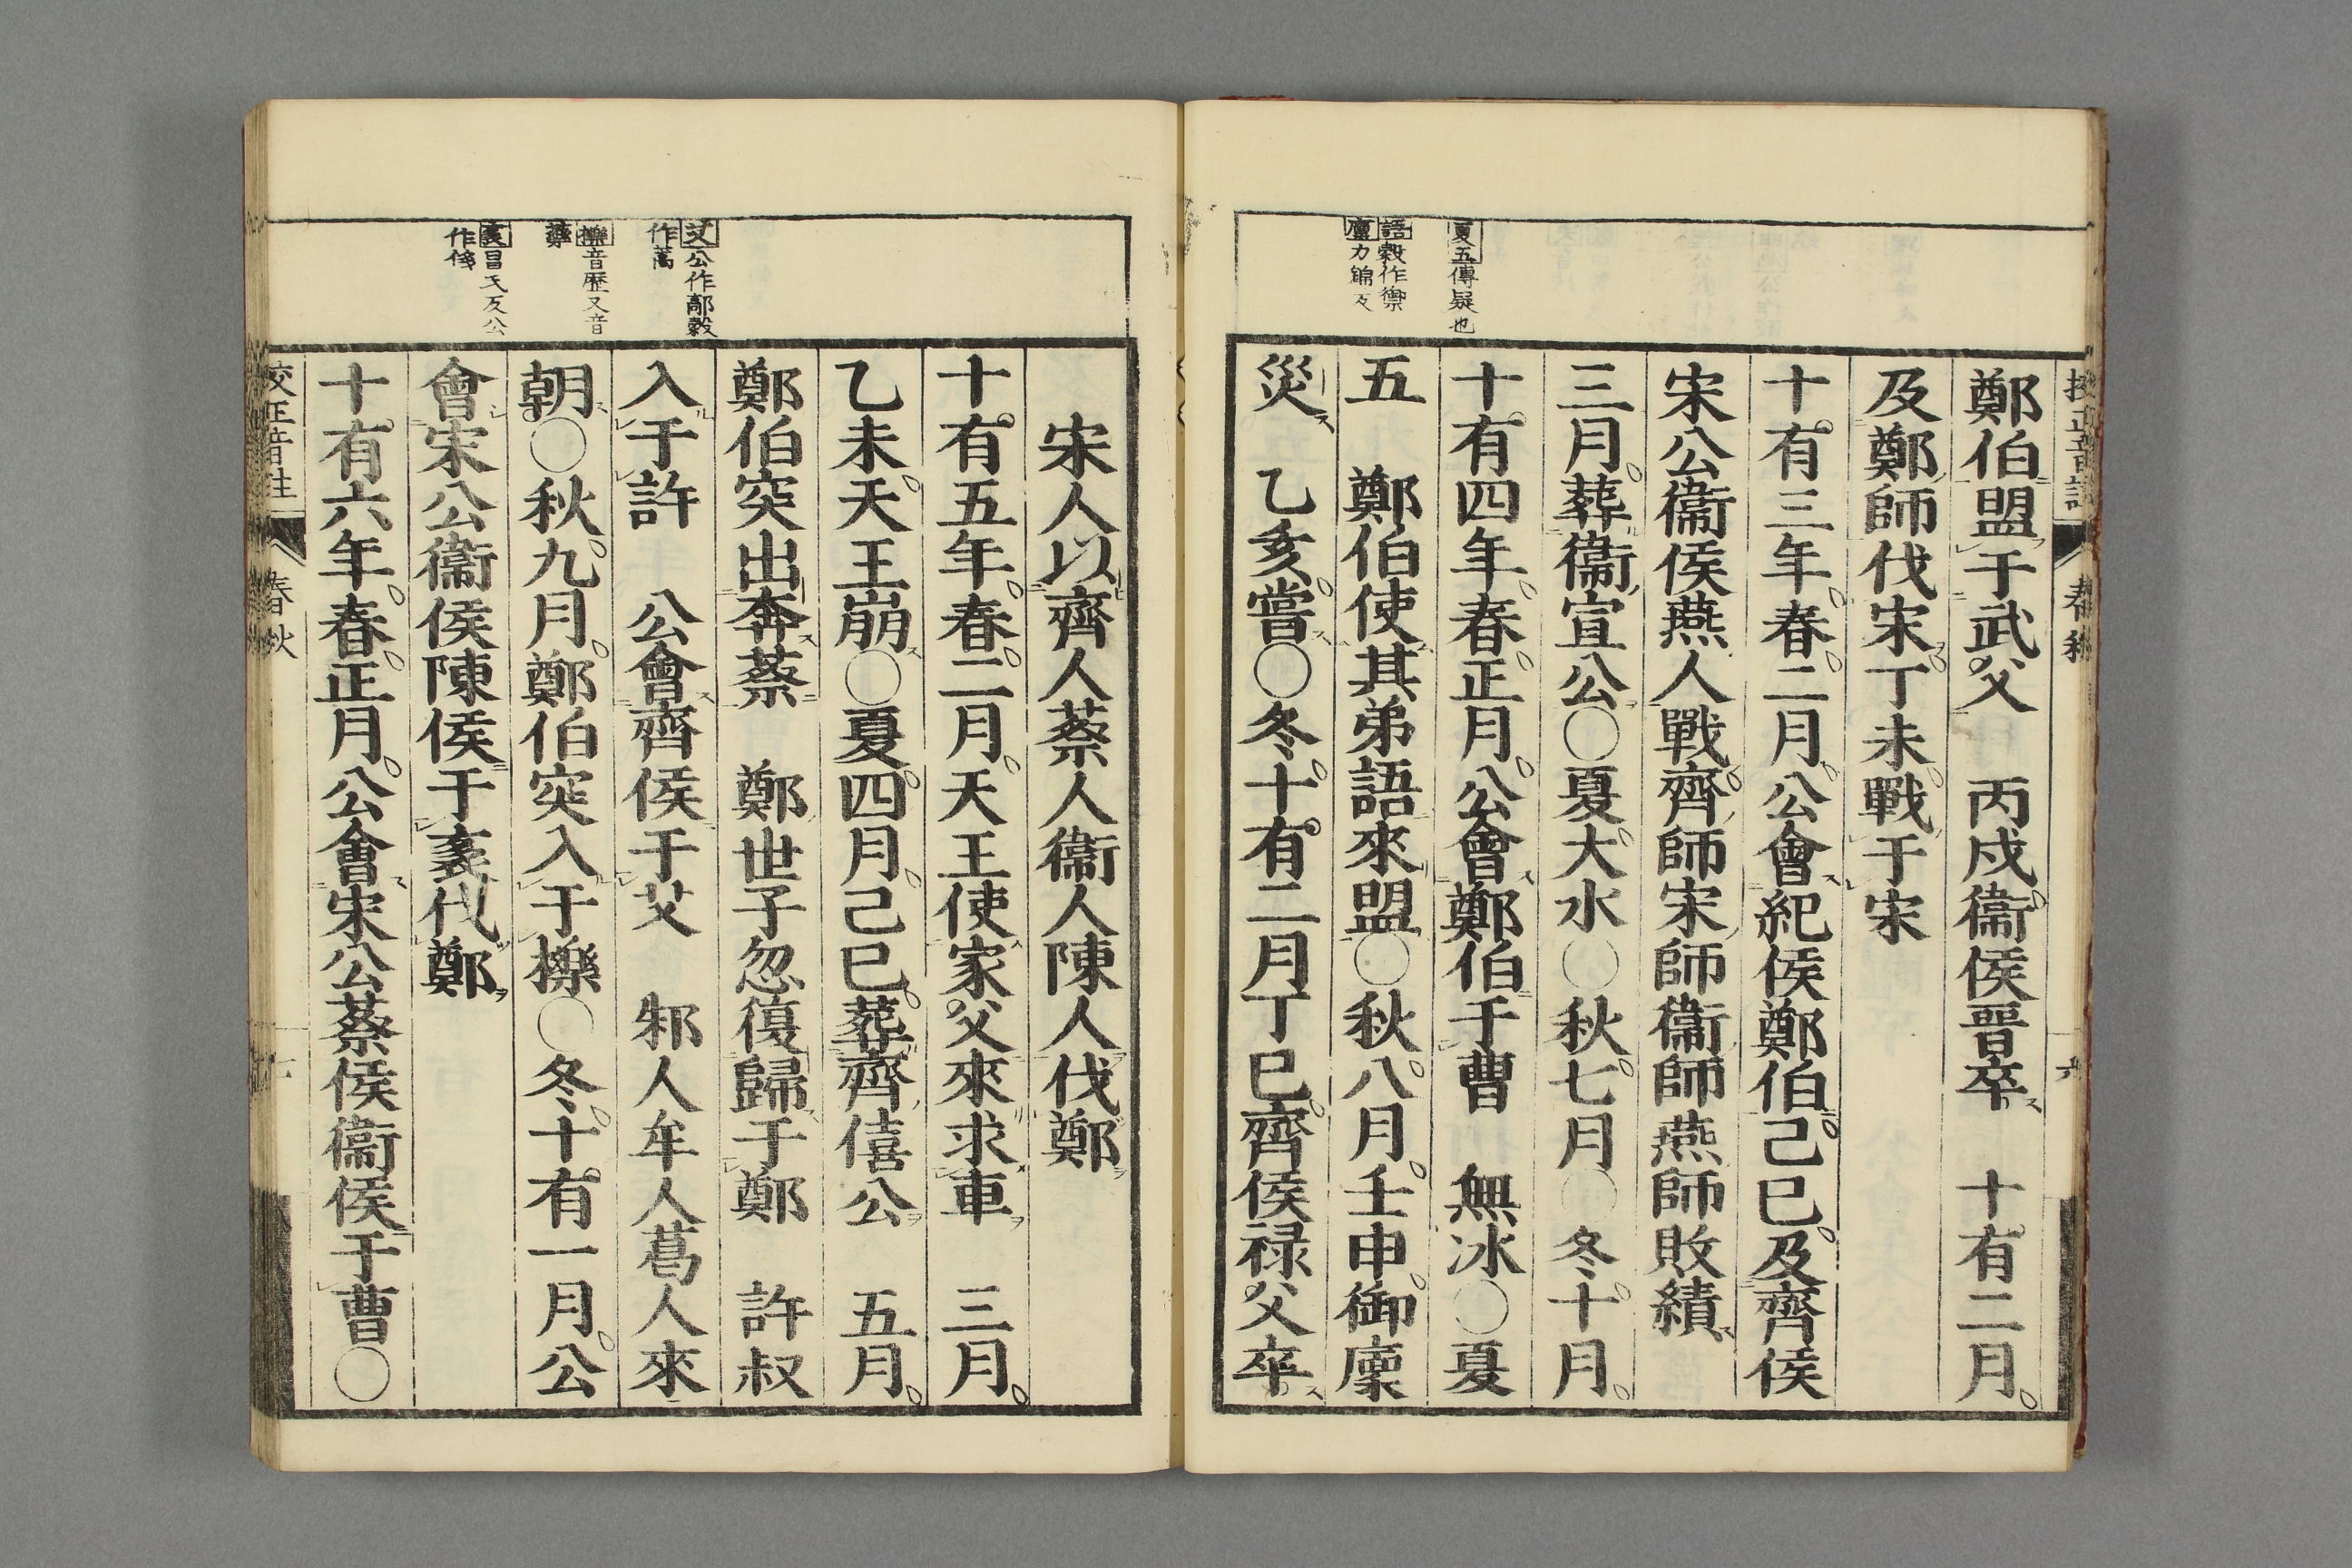 校正音註 春秋 六
鄭伯盟于武父 丙戍衞侯晉卒 十有二月
及鄭師伐宋丁未戰于宋
十有三年春二月公會紀侯鄭伯己巳及齊侯
宋公衞侯燕人戰齊師宋師衞師燕師敗績
三月葬衞宣公○夏大水○秋七月○冬十月
十有四年春正月公會鄭伯于曹 無冰○夏
五 鄭伯使其弟語來盟○秋八月壬申御廩
災 乙亥嘗○冬十有二月丁巳齊侯禄父卒
夏五傳疑也
語穀作禦
廩力錦反
宋人以齊人蔡人衞人陳人伐鄭
十有五年春二月天王使家父來求車 三月
乙未天王崩○夏四月己巳葬齊僖公 五月
鄭伯突出奔蔡 鄭世子忽復歸于鄭 許叔
入于許 公會齊侯于艾 邾人牟人葛人來
朝○秋九月鄭伯突入于櫟○冬十有一月公
會宋公衞侯陳侯于袲伐鄭
十有六年春正月公會宋公蔡侯衞侯于曹○
艾公作鄗穀
作蒿
櫟音歴又音
藥
袲昌氏反公
作侈
校正音註 春秋